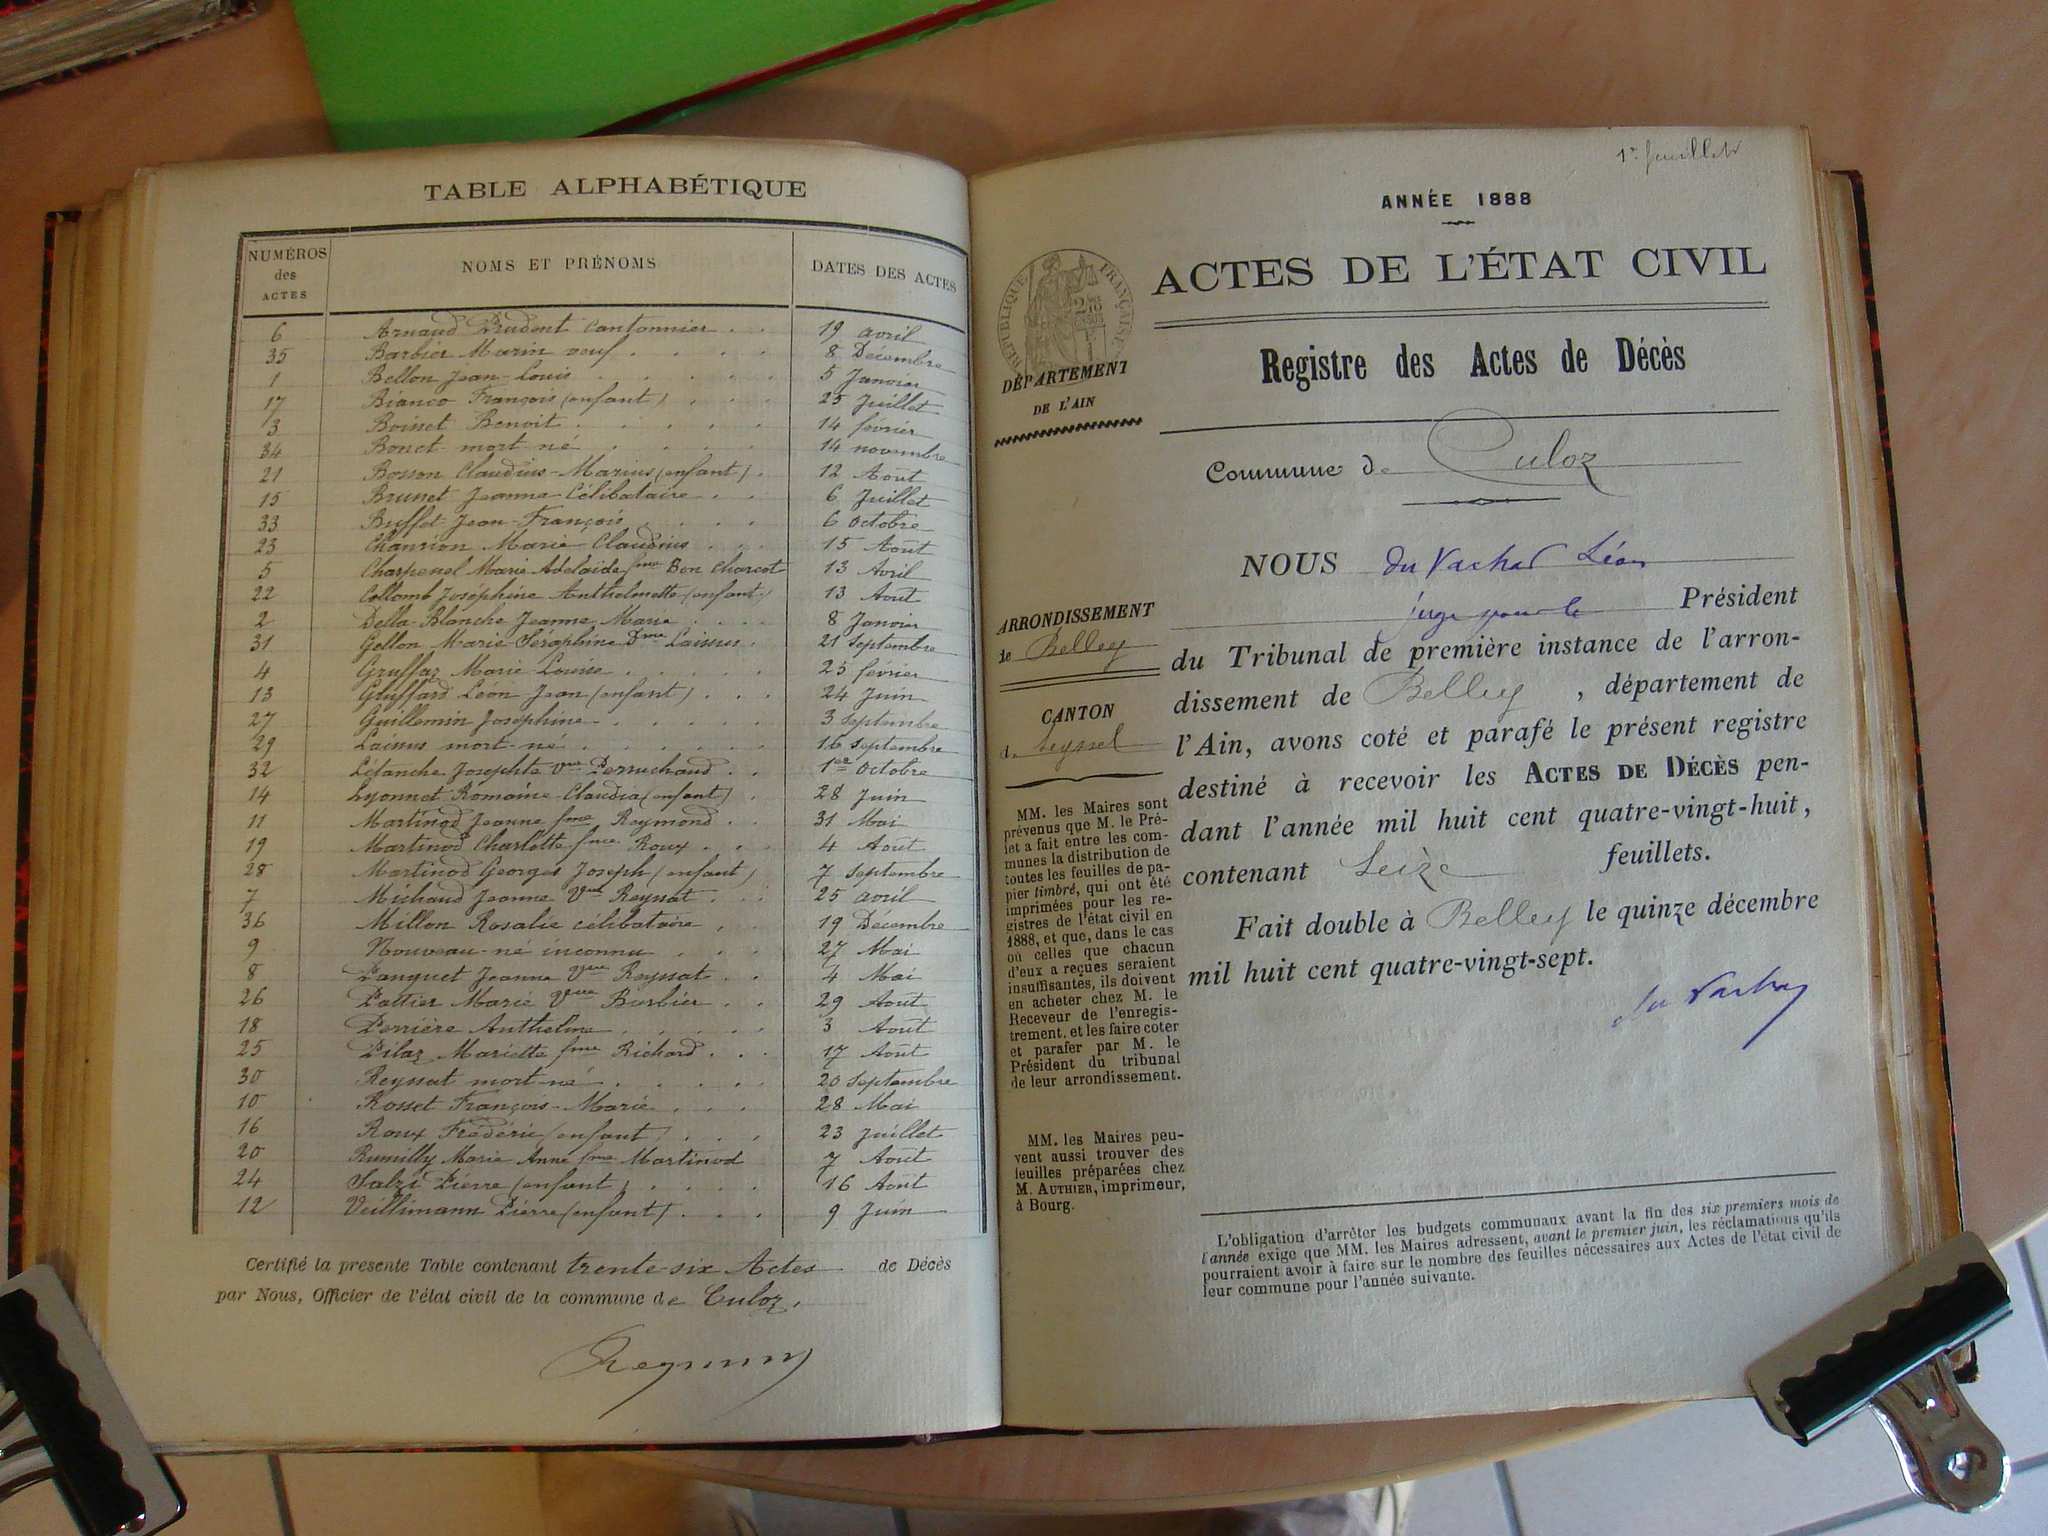 TABLE ALPHABÉTIQUE
NUMÉROS des ACTES NOMS ET PRÉNOMS DATES DES ACTES
6 Arnaud Prudent Cantonnier 19 avril
35 Barbier Marin veuf 8 Décembre
1 Bellon Jean-Louis 5 Janvier
17 Bianco François (enfant) 25 Juillet
3 Boisset Benoit 14 février
34 Bonet mort né 14 novembre
21 Bosson Claudius-Marius (enfant) 12 Août
15 Brunet Jeanne Célibataire 6 Juillet
33 Buffet Jean-François 6 octobre
23 Chanrion Marie Claudius 15 Août
5 Charpenel Marie Adelaïde fme Bon Charcot 13 Avril
22 Collomb Joséphine Anthelmette (enfant) 13 Août
2 Della-Blanche Jeanne Marie 8 Janvier
31 Gellon Marie Séraphine Laissus 21 Septembre
4 Gruffaz Marie Louise 25 février
13 Gruffard Léon Jean (enfant) 24 Juin
27 Guillemin Joséphine 3 Septembre
29 Laissus mort-né 16 Septembre
32 Létanche Josephte vve Perruchaud 1er Octobre
14 Lyonnet Romaine Claudia (enfant) 28 Juin
11 Martinod Jeanne fme Reymond 31 Mai
19 Martinod Charlotte fme Roux 4 Août
28 Martinod Georges Joseph (enfant) 7 Septembre
7 Michaud Jeanne Vve Reyssat 25 avril
36 Millon Rosalie célibataire 19 Décembre
9 Nouveau-né inconnu 27 Mai
8 Panguet Jeanne Vve Reyssat 4 Mai
26 Pattier Marie Vve Barbier 29 Août
18 Perrière Anthelme 3 Août
25 Pilaz Mariette fme Richard 17 Août
30 Reyssat mort-né 20 Septembre
10 Rosset François-Marie 28 Mai
16 Roux Frédéric (enfant) 23 Juillet
20 Rumilly Marie Anne fme Martinod 7 Août
24 Salzi Pierre (enfant) 16 Août
12 Veillimann Pierre (enfant) 9 Juin
Certifié la présente Table contenant trente-six Actes de Décès
par Nous, Officier de l'état civil de la commune de Culoz.
1er feuillet
ANNÉE 1888
ACTES DE L'ÉTAT CIVIL
RÉPUBLIQUE FRANÇAISE
DÉPARTEMENT
DE L'AIN
Registre des Actes de Décès
Commune de Culoz
NOUS du Vachat Léon
juge pour le Président
du Tribunal de première instance de l'arron-
dissement de Belley, département de
l'Ain, avons coté et parafé le présent registre
destiné à recevoir les ACTES DE DÉCÈS pen-
dant l'année mil huit cent quatre-vingt-huit,
contenant Seize feuillets.
Fait double à Belley le quinze décembre
mil huit cent quatre-vingt-sept.
du Vachat
ARRONDISSEMENT
de Belley
CANTON
de Seyssel
MM. les Maires sont
prévenus que M. le Pré-
fet a fait entre les com-
munes la distribution de
toutes les feuilles de pa-
pier timbré, qui ont été
imprimées pour les re-
gistres de l'état civil en
1888, et que, dans le cas
où celles que chacun
d'eux a reçues seraient
insuffisantes, ils doivent
en acheter chez M. le
Receveur de l'enregis-
trement, et les faire coter
et parafer par M. le
Président du tribunal
de leur arrondissement.
MM. les Maires peu-
vent aussi trouver des
feuilles préparées chez
M. AUTHIER, imprimeur,
à Bourg.
L'obligation d'arrêter les budgets communaux avant la fin des six premiers mois de
l'année exige que MM. les Maires adressent, avant le premier juin, les réclamations qu'ils
pourraient avoir à faire sur le nombre des feuilles nécessaires aux Actes de l'état civil de
leur commune pour l'année suivante.